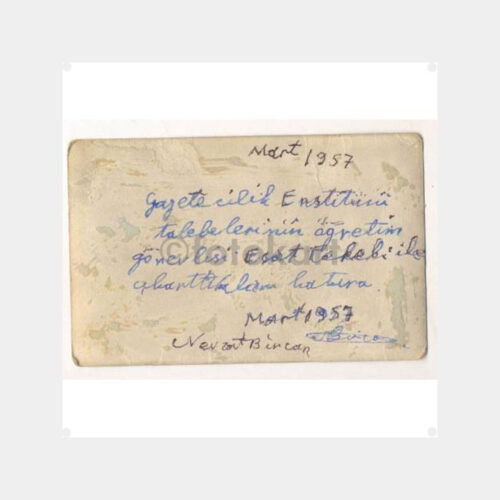 Mart 1957
Gazetecilik Enstitüsü
talebelerinin öğretim
görevlisi Esat Tekeli ile
çıkarttıkları hatıra
Mart 1957
Nevzat Bircan
©fotokart